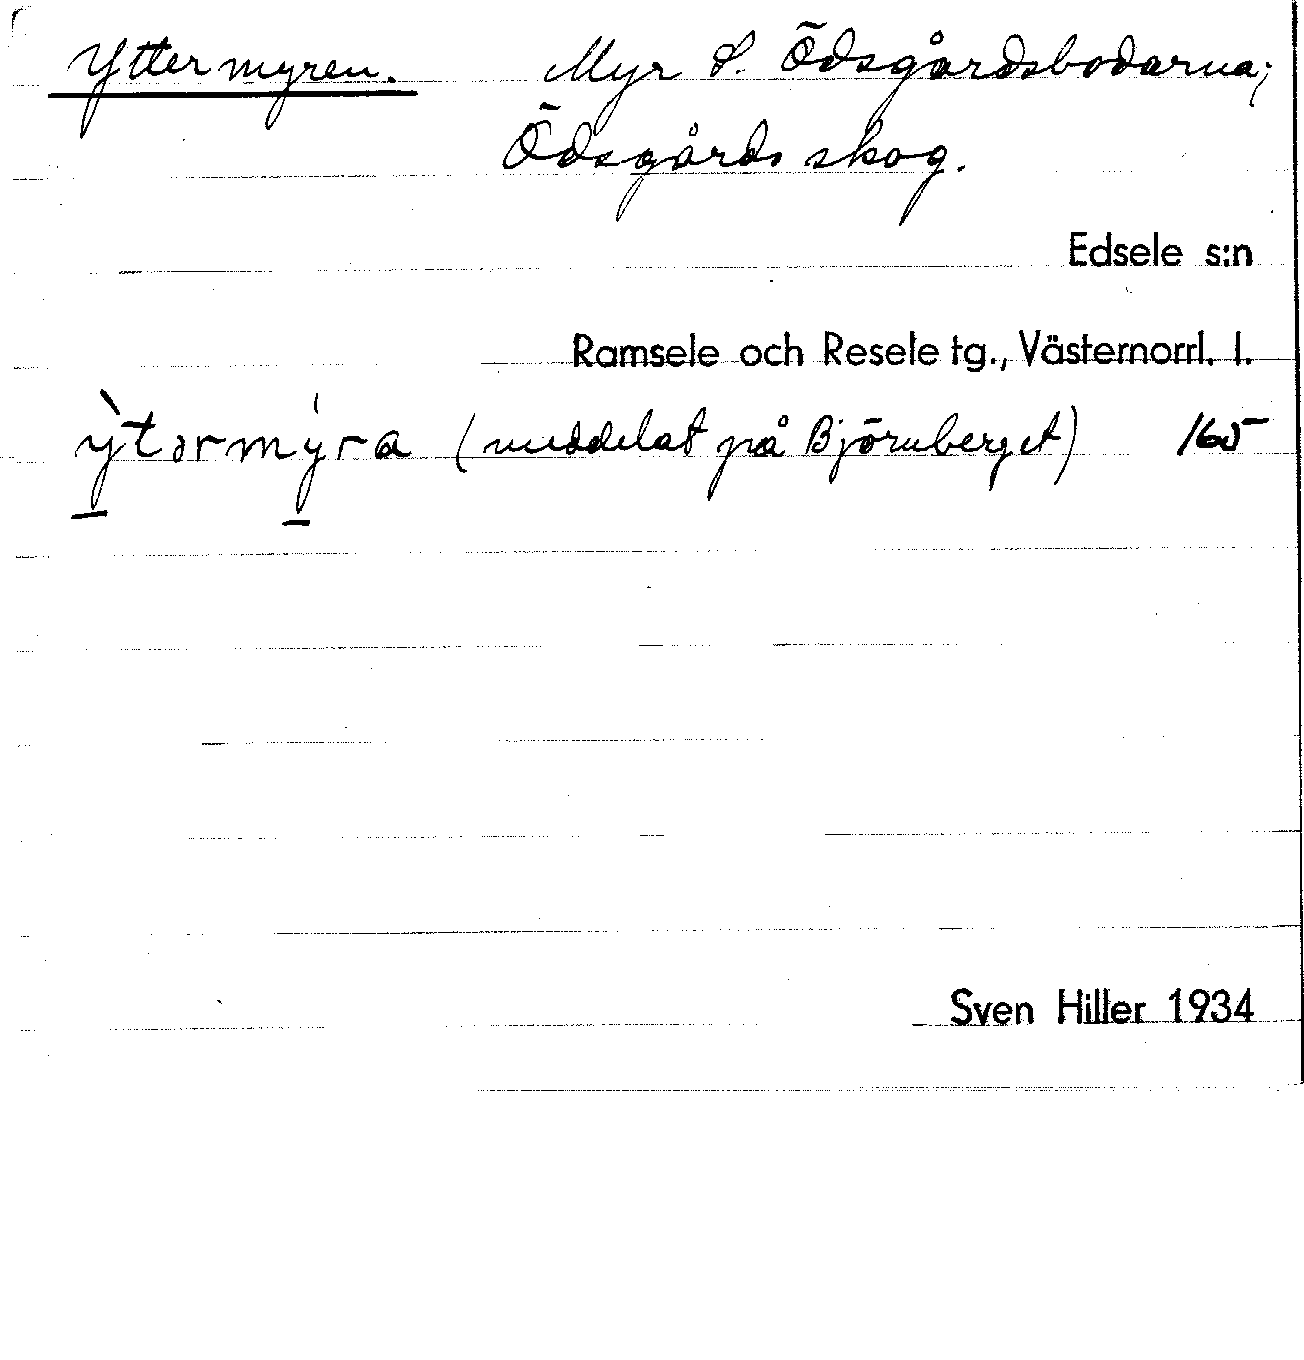 Yttermyren. Myr S. Ödsgårdsbodarna;
Ödsgårds skog.
Edsele s:n
Ramsele och Resele tg., Västernorrl. l.
ỳtərmýra (meddelat på Björnberget) 165
Sven Hiller 1934